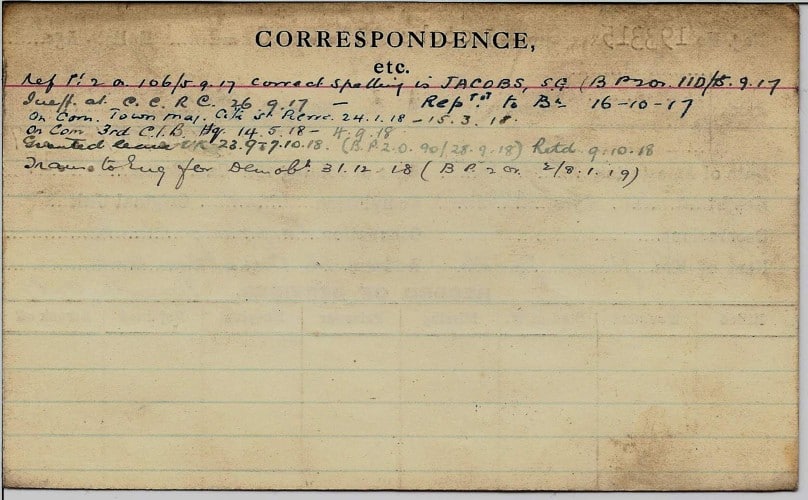 CORRESPONDENCE,
etc.
Ref Pt 2 O. 106/5.9.17 correct spelling is JACOBS, S.G (B P 2 or. 11D/15.9.17
Ineff. at C.C.R.C. 26.9.17 — Rep'd to Bn 16-10-17
On Com. Town Maj. Cité St Pierre 24.1.18 - 15.3.18.
On Com 3rd C.I.B. Hq. 14.5.18 - 4.9.18
Granted leave UK 23.9 to 7.10.18. (B.P.2.O. 90/28.9.18) Retd 9.10.18
Trans to Eng for Demob. 31.12.18 (B P. 2 or. 2/8.1.19)
193315